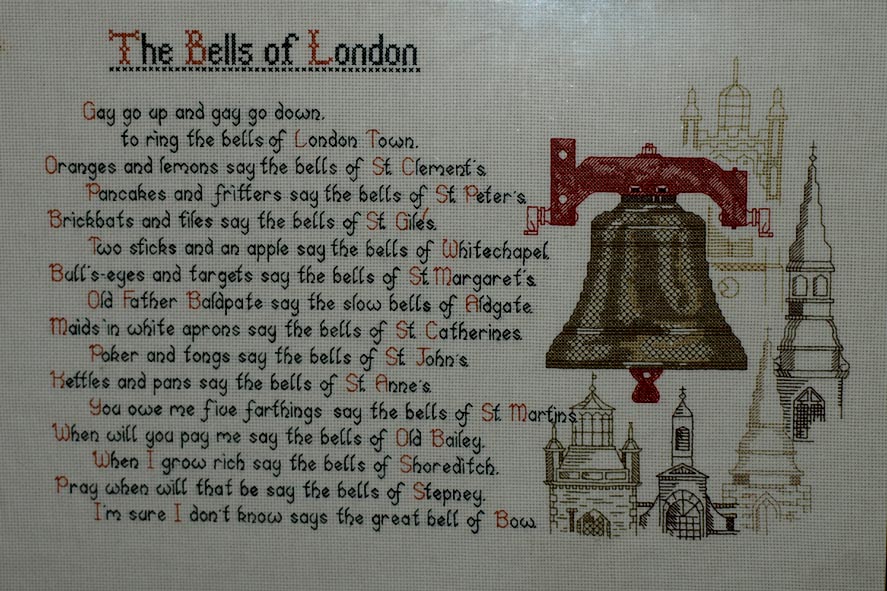 The Bells of London
Gay go up and gay go down.
to ring the bells of London Town.
Oranges and lemons say the bells of St. Clement's.
Pancakes and fritters say the bells of St. Peter's.
Brickbats and tiles say the bells of St. Gile's.
Two sticks and an apple say the bells of Whitechapel.
Bull's-eyes and targets say the bells of St. Margaret's.
Old Father Baldpate say the slow bells of Aldgate.
Maids in white aprons say the bells of St. Catherines.
Poker and tongs say the bells of St. John's.
Kettles and pans say the bells of St. Anne's.
You owe me five farthings say the bells of St. Martins.
When will you pay me say the bells of Old Bailey.
When I grow rich say the bells of Shoreditch.
Pray when will that be say the bells of Stepney.
I'm sure I don't know says the great bell of Bow.